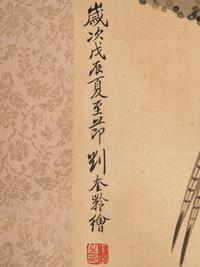 歲次戊辰夏至節劉奎齡繪